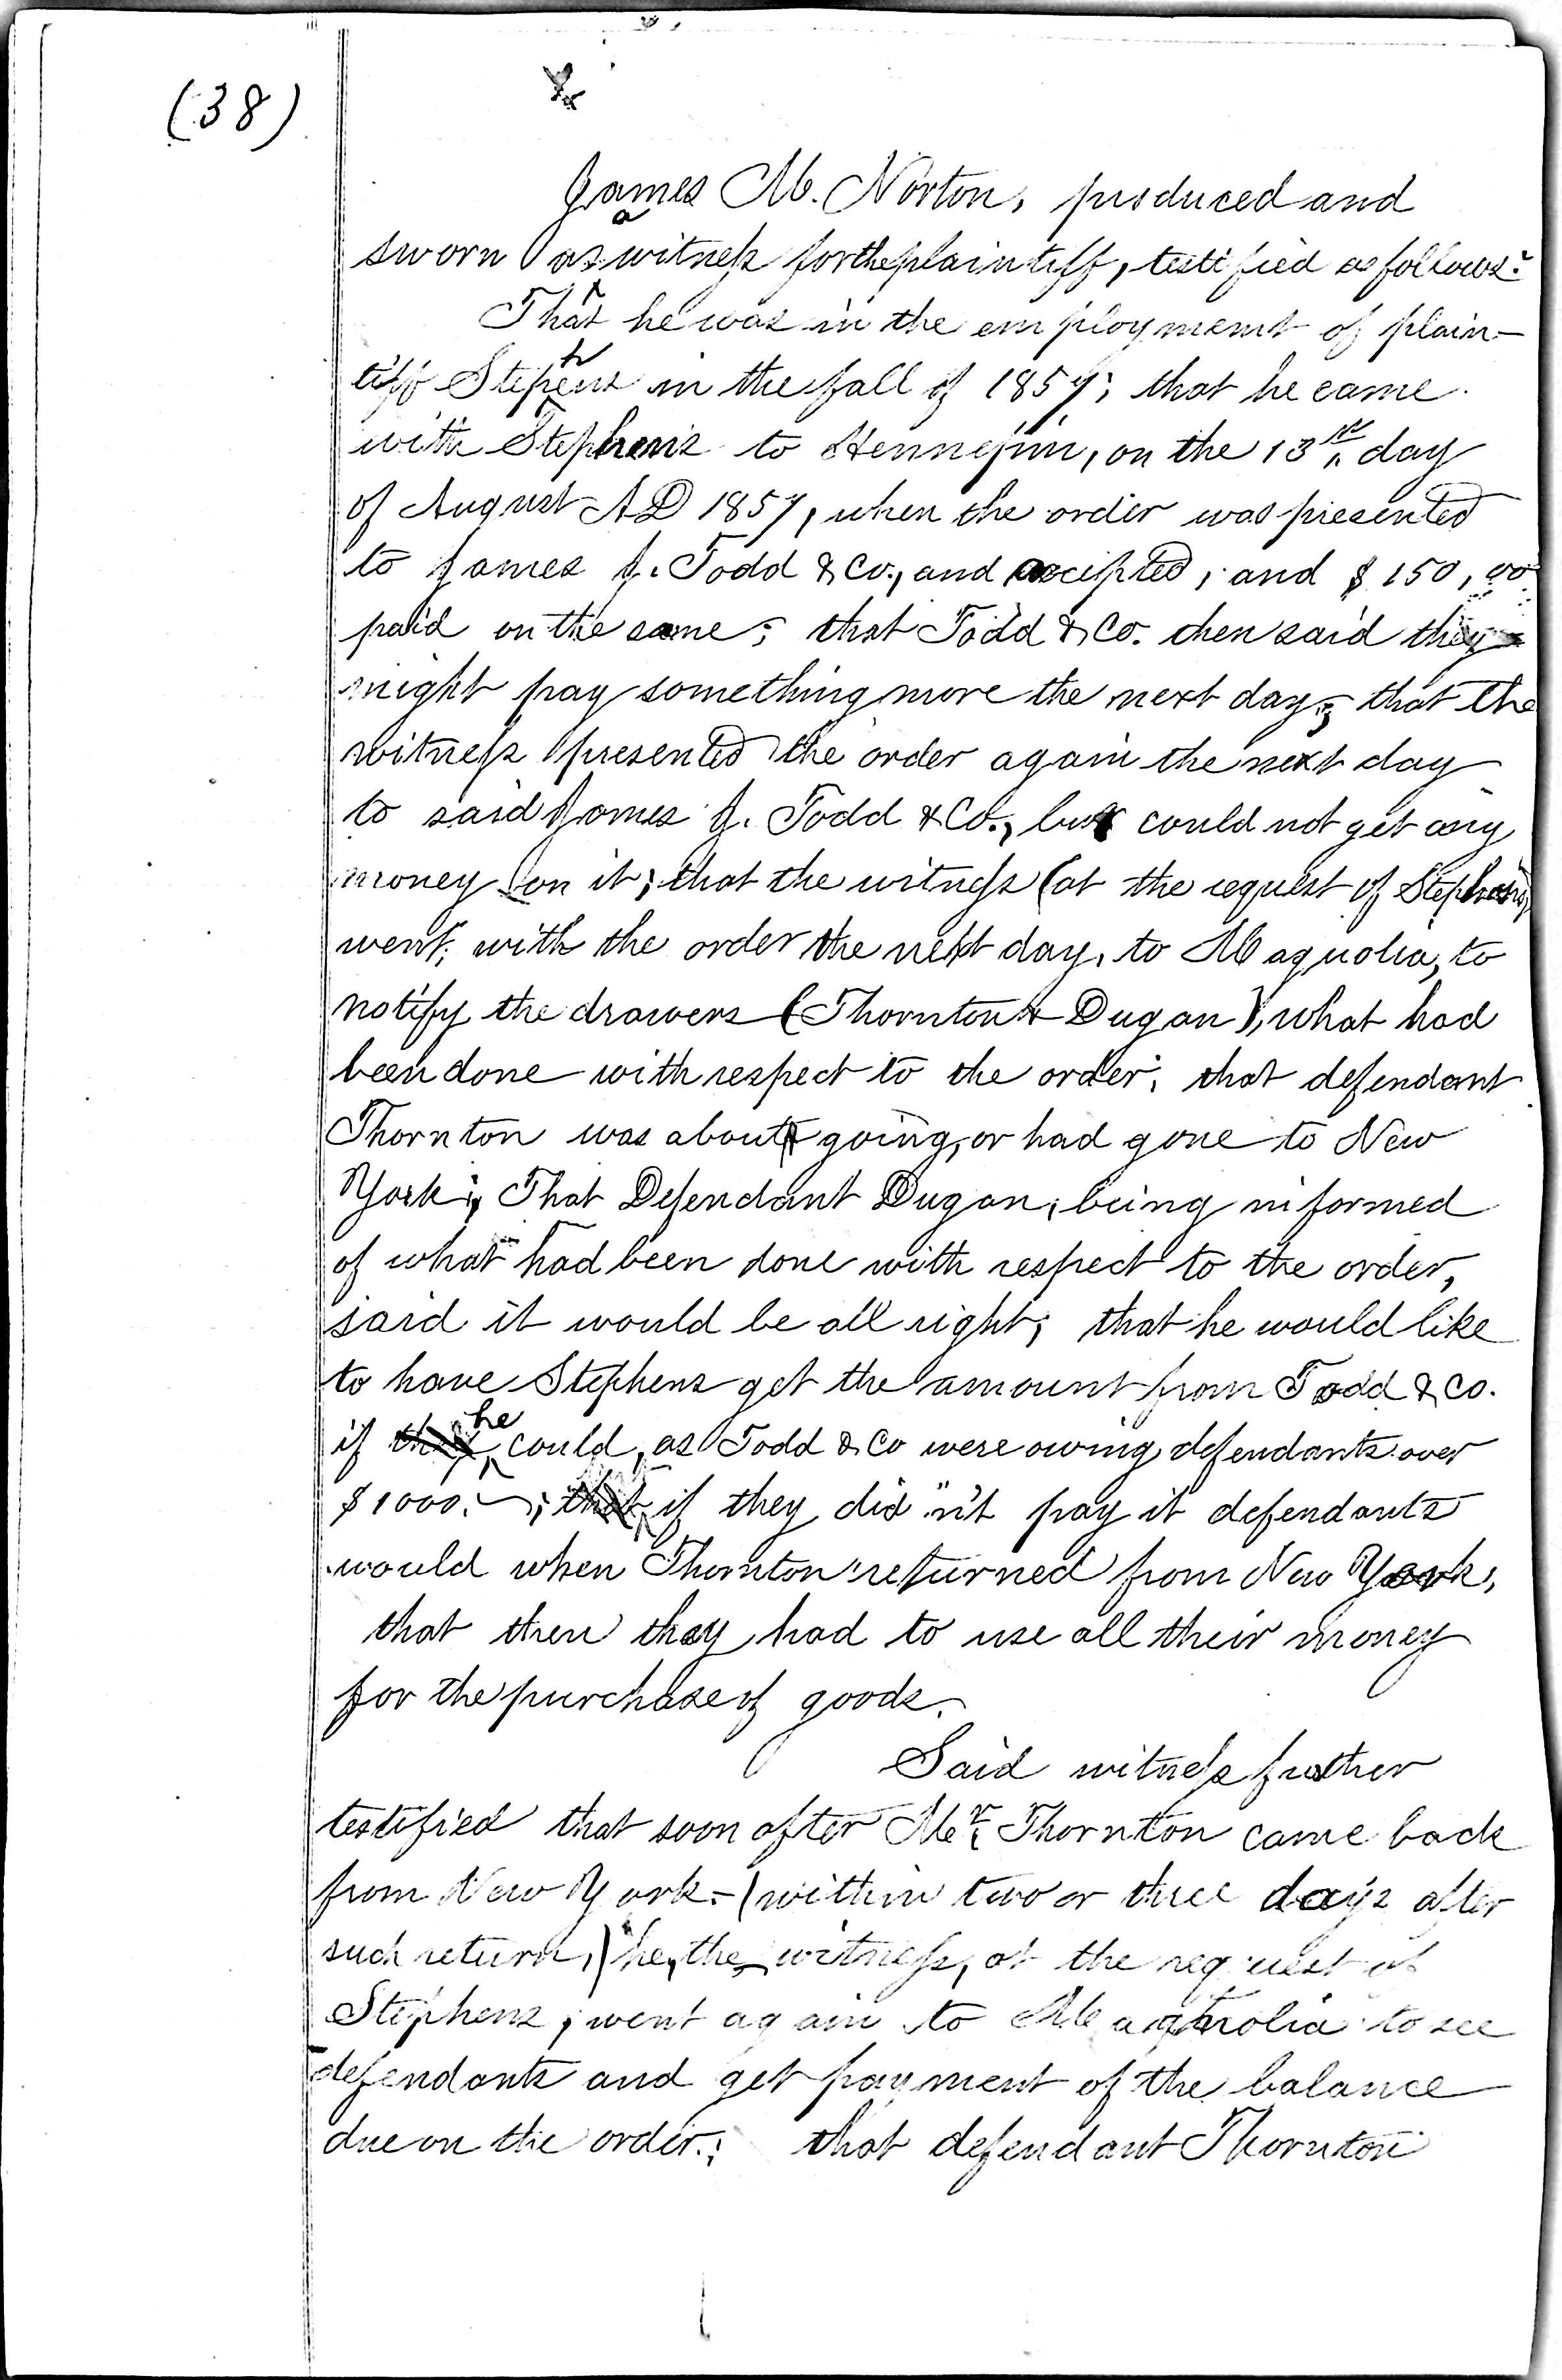 (38)
James M. Norton, produced and
sworn as a witness for the plaintiff, testified as follows:
That he was in the employment of plain-
tiff Stephens in the fall of 1857; that he came
with Stephens to Hennepin, on the 13th day
of August AD 1857, when the order was presented
to James J. Todd & Co., and accepted, and $150,00
paid on the same; that Todd & Co. then said they
might pay something more the next day; that the
witness presented the order again the next day
to said James J. Todd & Co., but could not get any
money on it; that the witness (at the request of Stephens)
went, with the order the next day, to Magnolia, to
notify the drawers (Thornton & Dugan), what had
been done with respect to the order; that defendant
Thornton was about going, or had gone to New
York; That Defendant Dugan, being informed
of what had been done with respect to the order,
said it would be all right; that he would like
to have Stephens get the amount from Todd & Co.
if he could, as Todd & Co were owing defendants over
$1000.—; if they did n't pay it defendants
would when Thornton returned from New York,
that then they had to use all their money
for the purchase of goods.
Said witness further
testified that soon after Mr. Thornton came back
from New York—(within two or three days after
such return,) he, the witness, at the request of
Stephens, went again to Magnolia to see
defendants and get payment of the balance
due on the order; that defendant Thornton